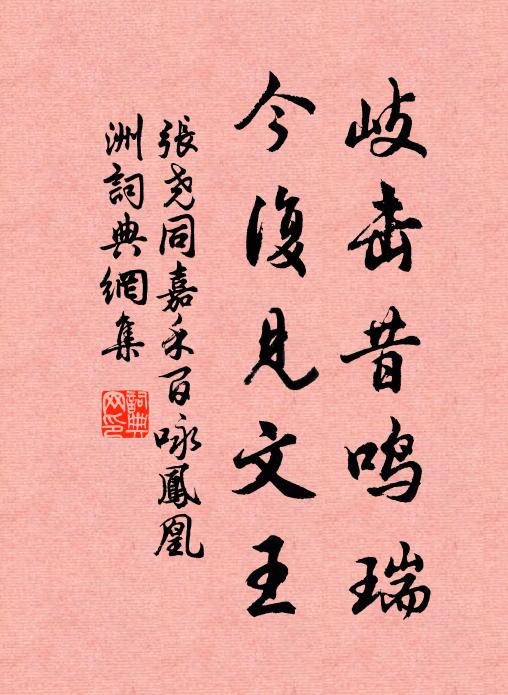 岐击昔鳴瑞
今復見文王
張堯同嘉禾百咏鳳凰
洲詞典網集
詞典
网印